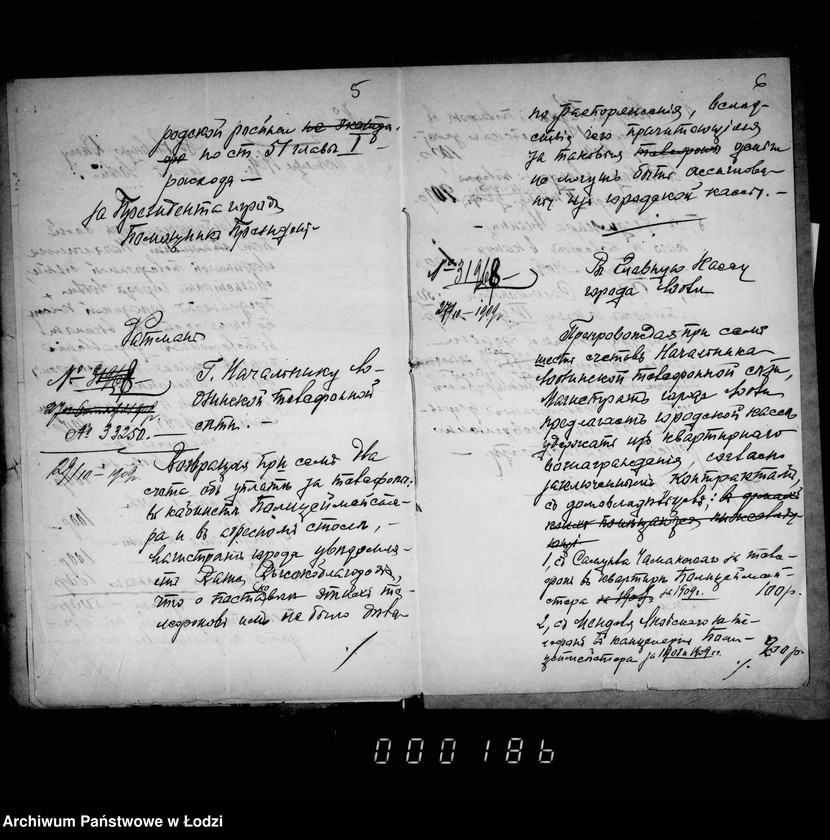 5
родской росписи не
по ст. 51 главы I
расхода —
За Президента города
Помощникъ Президента
Ратманъ
№ 31968
27
№ 33250. —
29/10 - 1909
Г. Начальнику Ло-
дзинской телефонной
сѣти. —
Возвращая при семъ два
счета объ уплатѣ за телефоны:
въ кабинетѣ Полицеймейсте-
ра и въ адресномъ столѣ, —
Магистратъ города увѣдомля-
етъ Ваше Высокоблагородіе,
что о поставкѣ этихъ те-
лефоновъ имъ не было дѣла-
./.
6
но распоряженія, вслѣд-
ствіе чего причитающіяся
за таковые телефоны деньги
не могутъ быть ассигнова-
ны изъ городской кассы. —
№ 31968 —
27/10 - 1909 г.
Въ Главную Кассу
города Лодзи
Препровождая при семъ
шесть счетовъ Начальника
Лодзинской телефонной сѣти,
Магистратъ города Лодзи
предлагаетъ городской кассѣ
удержать изъ квартирнаго
вознагражденія, согласно
заключеннымъ контрактамъ,
съ домовладѣльцевъ: въ домахъ
коихъ помѣщаются
1, съ Самуила Чаманскаго за теле-
фонъ въ квартирѣ Полицеймей-
стера за 1908 за 1909 г. 100 р.
2, съ за те-
лефонъ въ канцеляріи Поли-
цеймейстера за 1908 и 1909 гг. 200 р.
./.
000186
Archiwum Państwowe w Łodzi